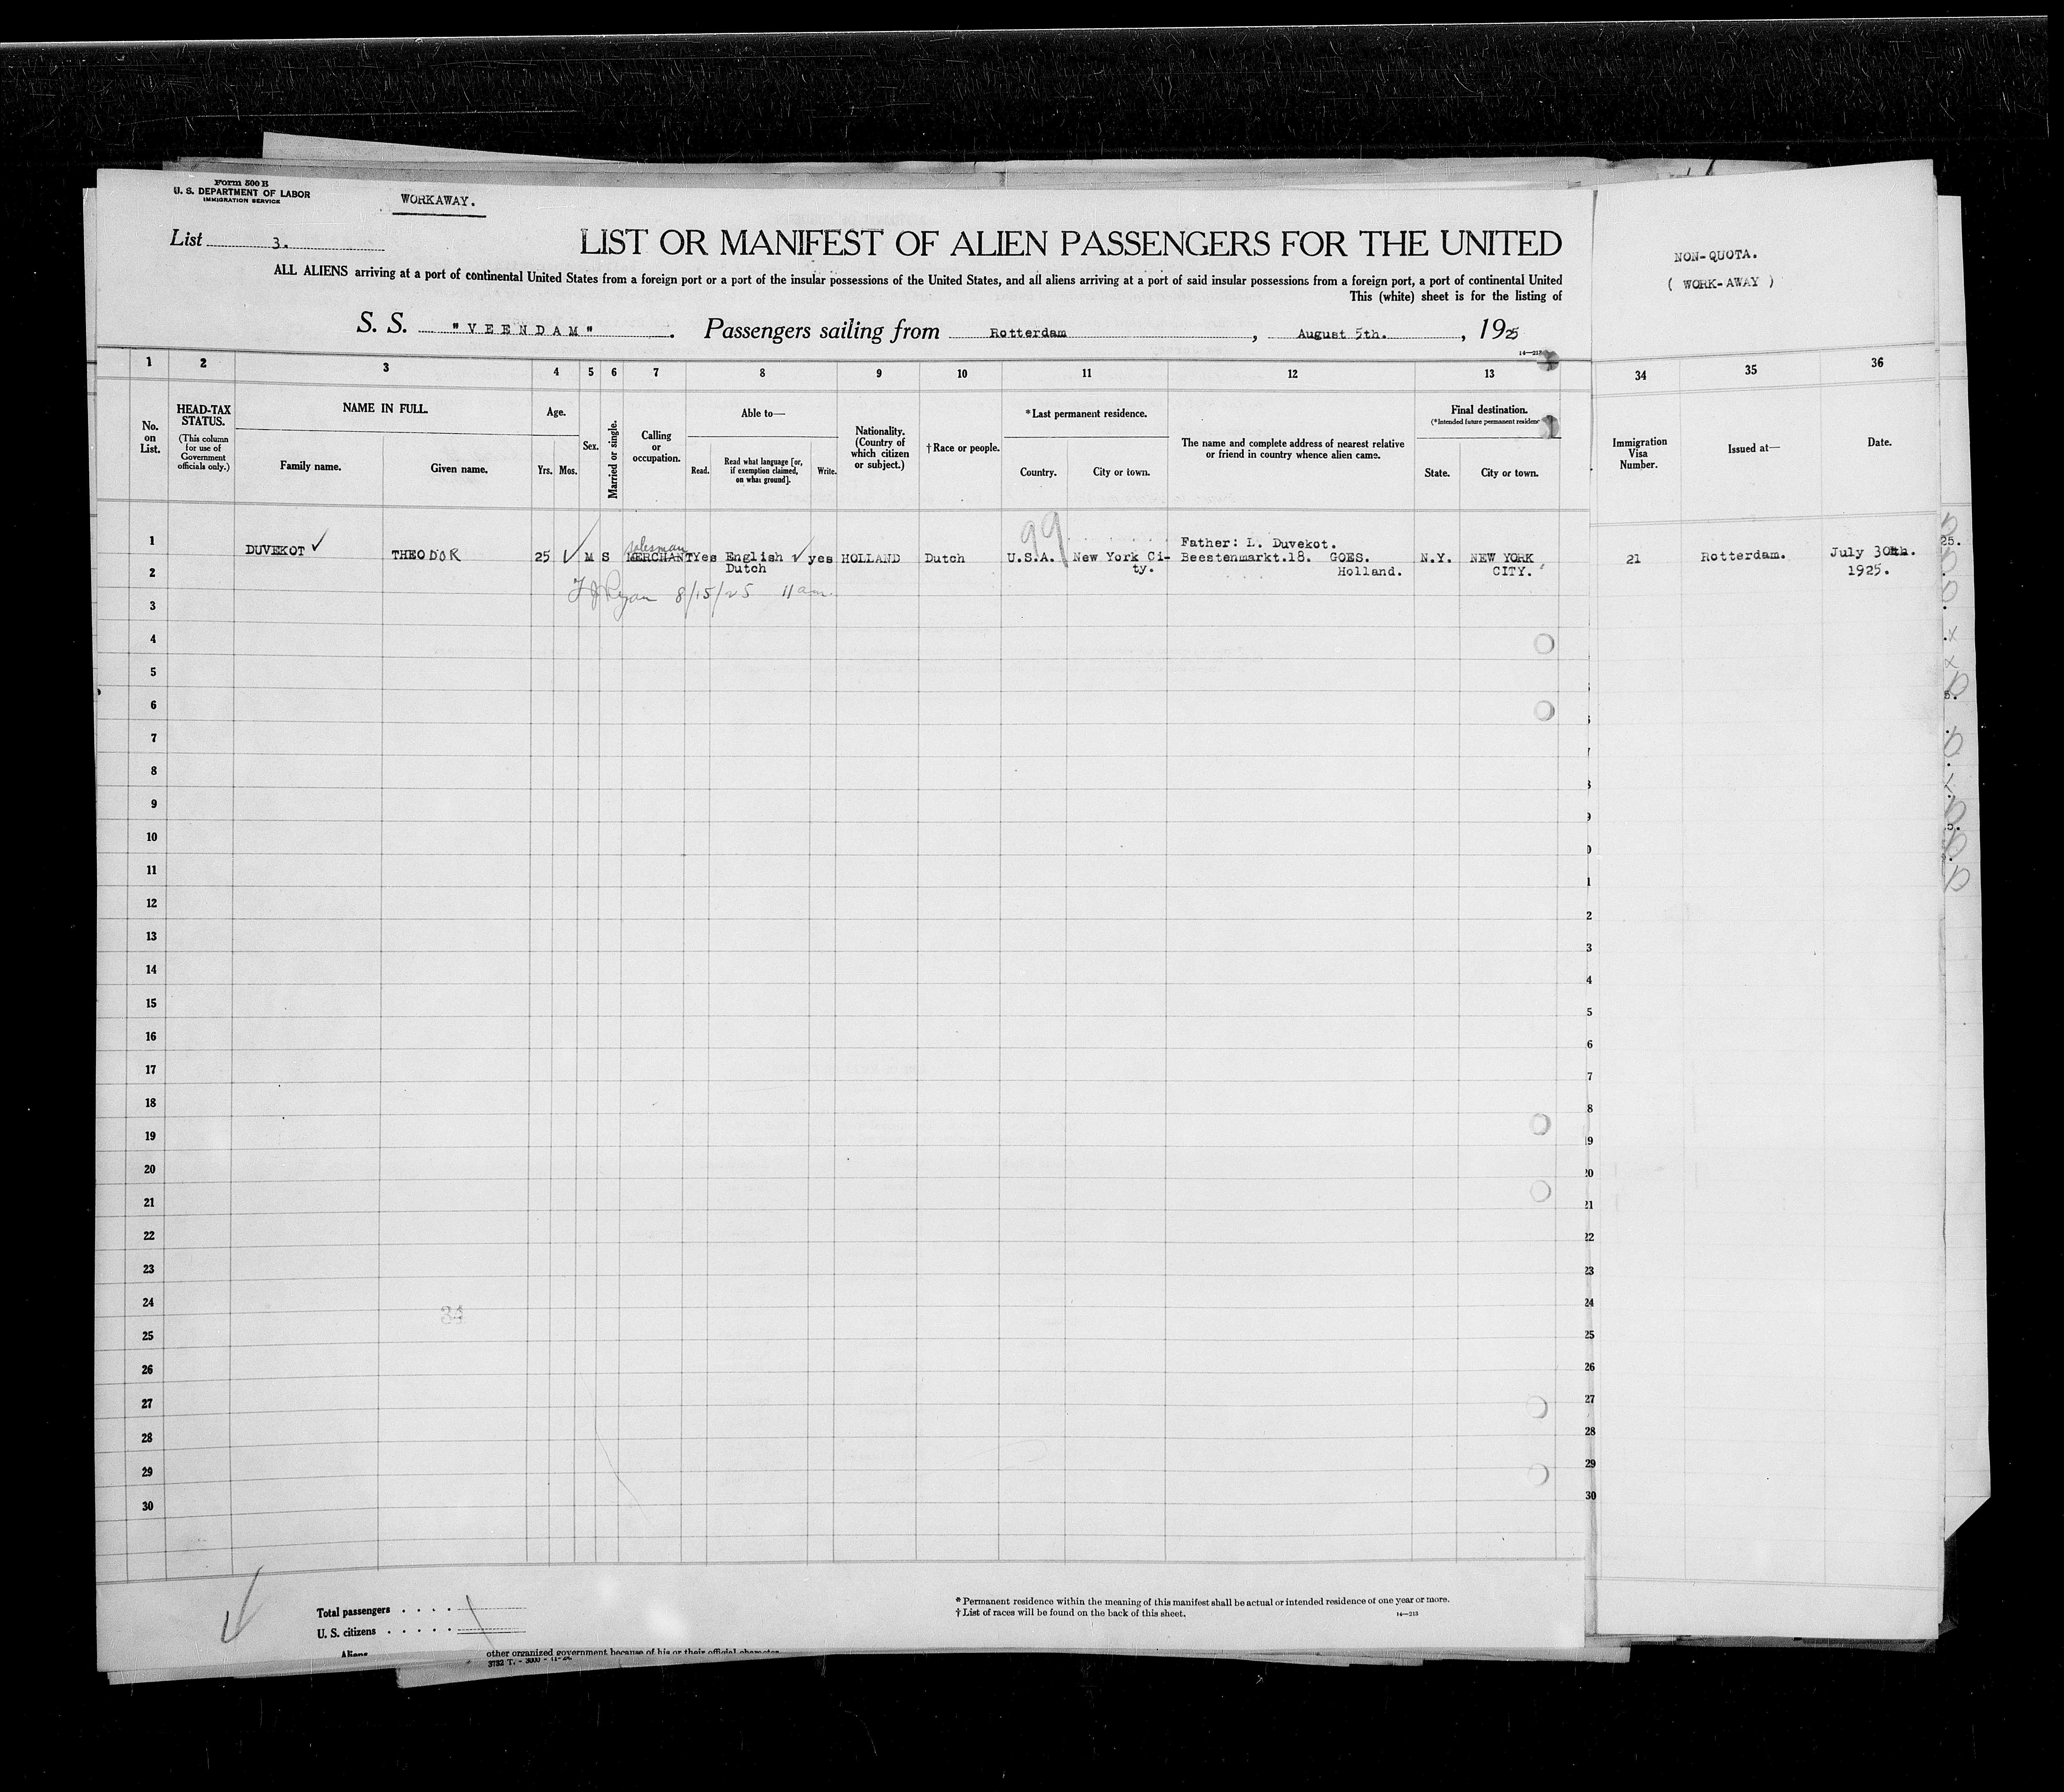 Form 500 B
U. S. DEPARTMENT OF LABOR
IMMIGRATION SERVICE
WORKAWAY.
List 3.
LIST OR MANIFEST OF ALIEN PASSENGERS FOR THE UNITED
ALL ALIENS arriving at a port of continental United States from a foreign port or a port of the insular possessions of the United States, and all aliens arriving at a port of said insular possessions from a foreign port, a port of continental United
This (white) sheet is for the listing of
S. S. "VEENDAM" . Passengers sailing from Rotterdam , August 5th. , 1925
NON-QUOTA.
( WORK-AWAY )
1 2 3 4 5 6 7 8 9 10 11 12 13 34 35 36
No. on List.
HEAD-TAX STATUS.
(This column for use of Government officials only.)
NAME IN FULL.
Family name. Given name.
Age.
Yrs. Mos.
Sex.
Married or single.
Calling or occupation.
Able to—
Read. Read what language [or, if exemption claimed, on what ground]. Write.
Nationality. (Country of which citizen or subject.)
†Race or people.
*Last permanent residence.
Country. City or town.
The name and complete address of nearest relative or friend in country whence alien came.
Final destination.
(*Intended future permanent residenc
State. City or town.
Immigration Visa Number.
Issued at—
Date.
99
1 DUVEKOT THEODOR 25 M S salesman MERCHANT Yes English yes HOLLAND Dutch U.S.A. New York Ci- Father: L. Duvekot. Beestenmarkt.18. GOES. N.Y. NEW YORK 21 Rotterdam. July 30th.
2 Dutch ty. Holland. CITY. 1925.
3 8/15/25 11 am.
4
5
6
7
8
9
10
11
12
13
14
15
16
17
18
19
20
21
22
23
24
25
26
27
28
29
30
34
Total passengers . . . .
U. S. citizens . . . . .
Aliens
*Permanent residence within the meaning of this manifest shall be actual or intended residence of one year or more.
†List of races will be found on the back of this sheet.
14—213
other organized government because of his or their official character